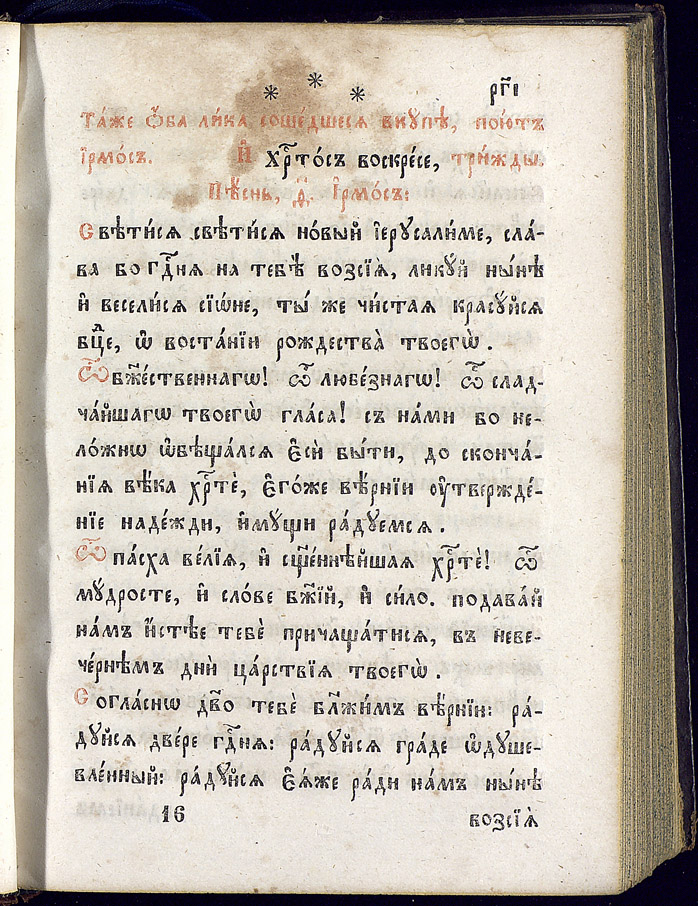 * * *
р҃гі
Та́же ѻ҆́ба ли́ка соше́дшеся вкꙋ́пѣ, пою́тъ
і҆рмо́съ. И҆ хрⷭ҇то́съ воскре́се, три́жды.
Пѣ́снь, ѳ҃. І҆рмо́съ:
Свѣти́сѧ свѣти́сѧ но́вый і҆ерꙋсали́ме, сла́-
ва бо гдⷭ҇нѧ на тебѣ̀ возсїѧ̀, ликꙋ́й ны́нѣ
и҆ весели́сѧ сїѡ́не, ты́ же чи́стаѧ красꙋ́йсѧ
бцⷣе, ѡ҆ воста́нїи рождества̀ твоегѡ̀.
Ѽ бж҃е́ственнагѡ! ѽ любе́знагѡ! ѽ слад-
ча́йшагѡ твоегѡ̀ гла́са! съ на́ми бо не-
ло́жнѡ ѡ҆бѣща́лсѧ є҆сѝ бы́ти, до сконча́-
нїѧ вѣ́ка хрⷭ҇тѐ, є҆го́же вѣ́рнїи ᲂу҆твержде́-
нїе наде́жди, и҆мꙋ́щи ра́дꙋемсѧ.
Ѽ па́сха ве́лїѧ, и҆ сщ҃е́ннѣйшаѧ хрⷭ҇тѐ! ѽ
мꙋ́дросте, и҆ сло́ве бж҃їй, и҆ си́ло. подава́й
на́мъ и҆́стѣе тебѐ причаща́тисѧ, въ неве-
че́рнѣмъ днѝ ца́рствїѧ твоегѡ̀.
Согла́снѡ дв҃о тебѐ бл҃жи́мъ вѣ́рнїи: ра́-
дꙋйсѧ две́ре гдⷭ҇нѧ: ра́дꙋйсѧ гра́де ѡ҆дꙋше-
вле́нный: ра́дꙋйсѧ є҆ѧ́же ра́ди на́мъ ны́нѣ
16
возсїѧ̀